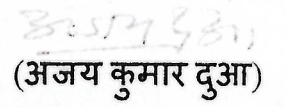 (अजय कुमार दुआ)